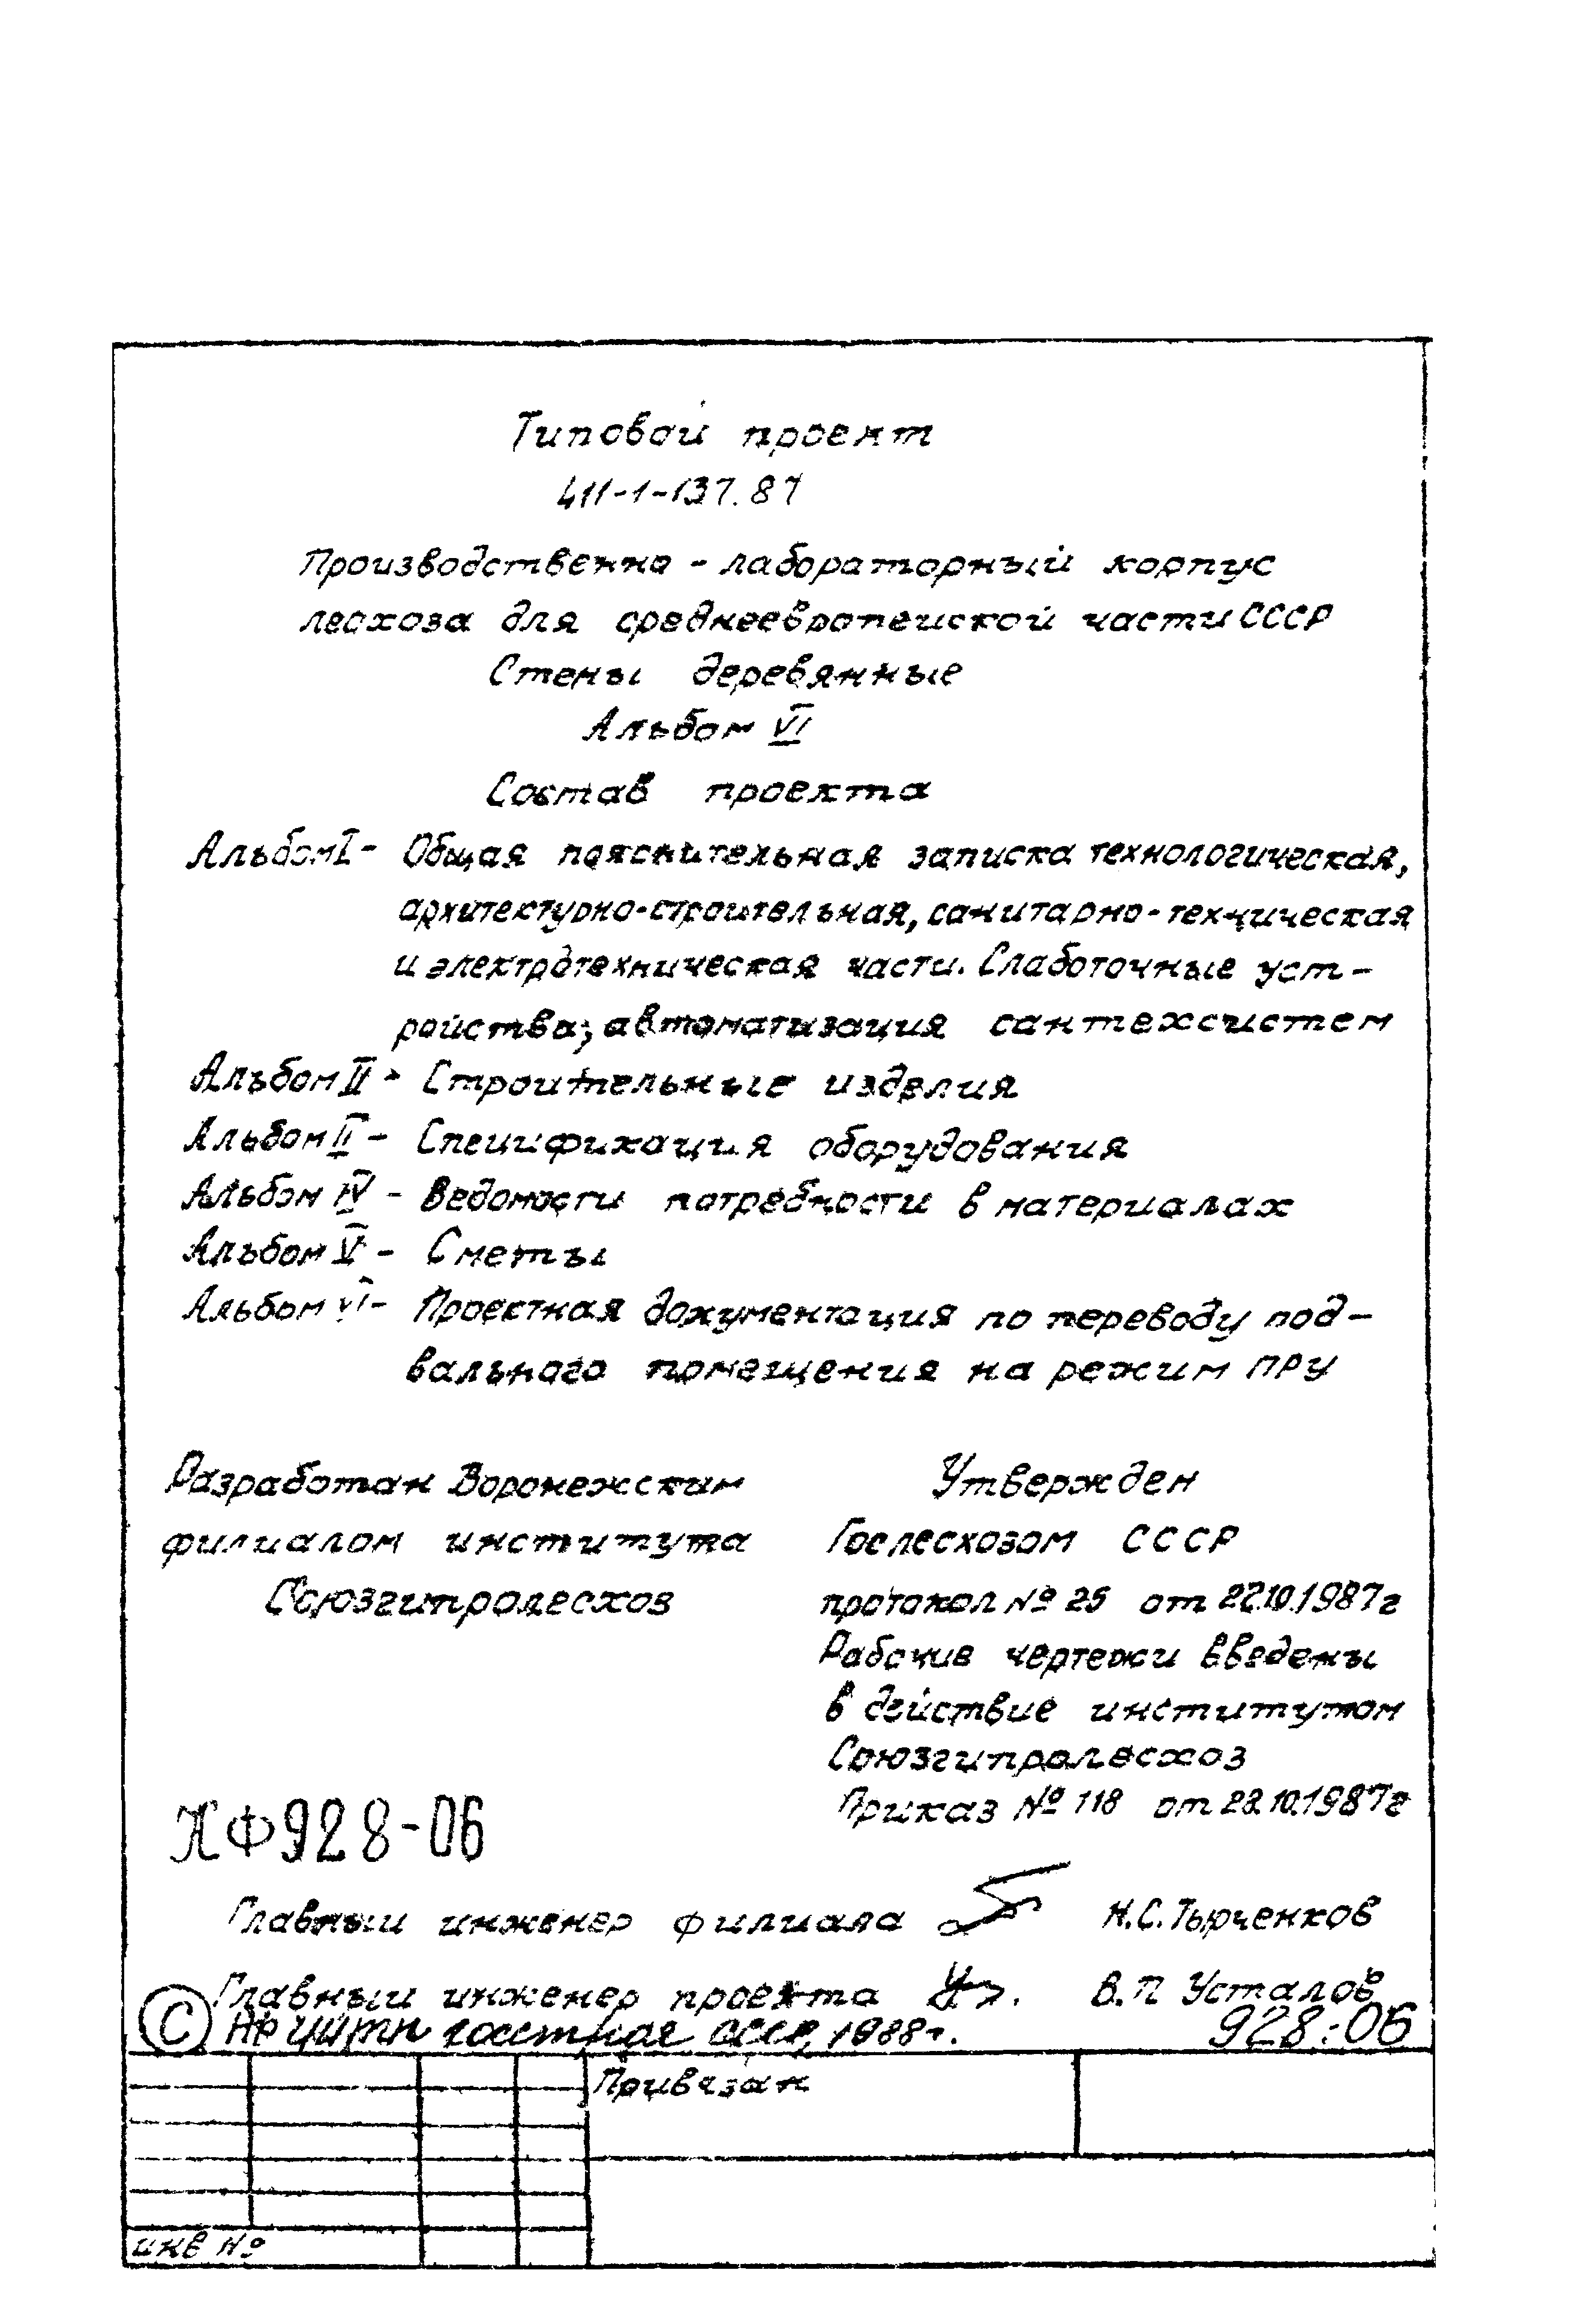 Типовой проект
411-1-137.87
Производственно - лабораторный корпус
лесхоза для среднеевропейской части СССР
Стены деревянные
Альбом VI
Состав проекта
Альбом I - Общая пояснительная записка технологическая,
архитектурно-строительная, санитарно-техническая
и электротехническая части. Слаботочные уст-
ройства, автоматизация сантехсистем
Альбом II - Строительные изделия
Альбом II - Спецификация оборудования
Альбом IV - Ведомости потребности в материалах
Альбом V - Сметы
Альбом VI - Проектная документация по переводу под-
вального помещения на режим ПРУ
Разработан Воронежским
филиалом института
Союзгипролесхоз
Утвержден
Гослесхозом СССР
протокол № 25 от 22.10.1987г
Рабочие чертежи введены
в действие институтом
Союзгипролесхоз
Приказ № 118 от 23.10.1987г
КФ 928-06
Главный инженер филиала Н.С. Тырченков
Главный инженер проекта В.П Усталов
© КФ ЦИТП госстроя СССР, 1988г. 928-06
Привязан
инв №